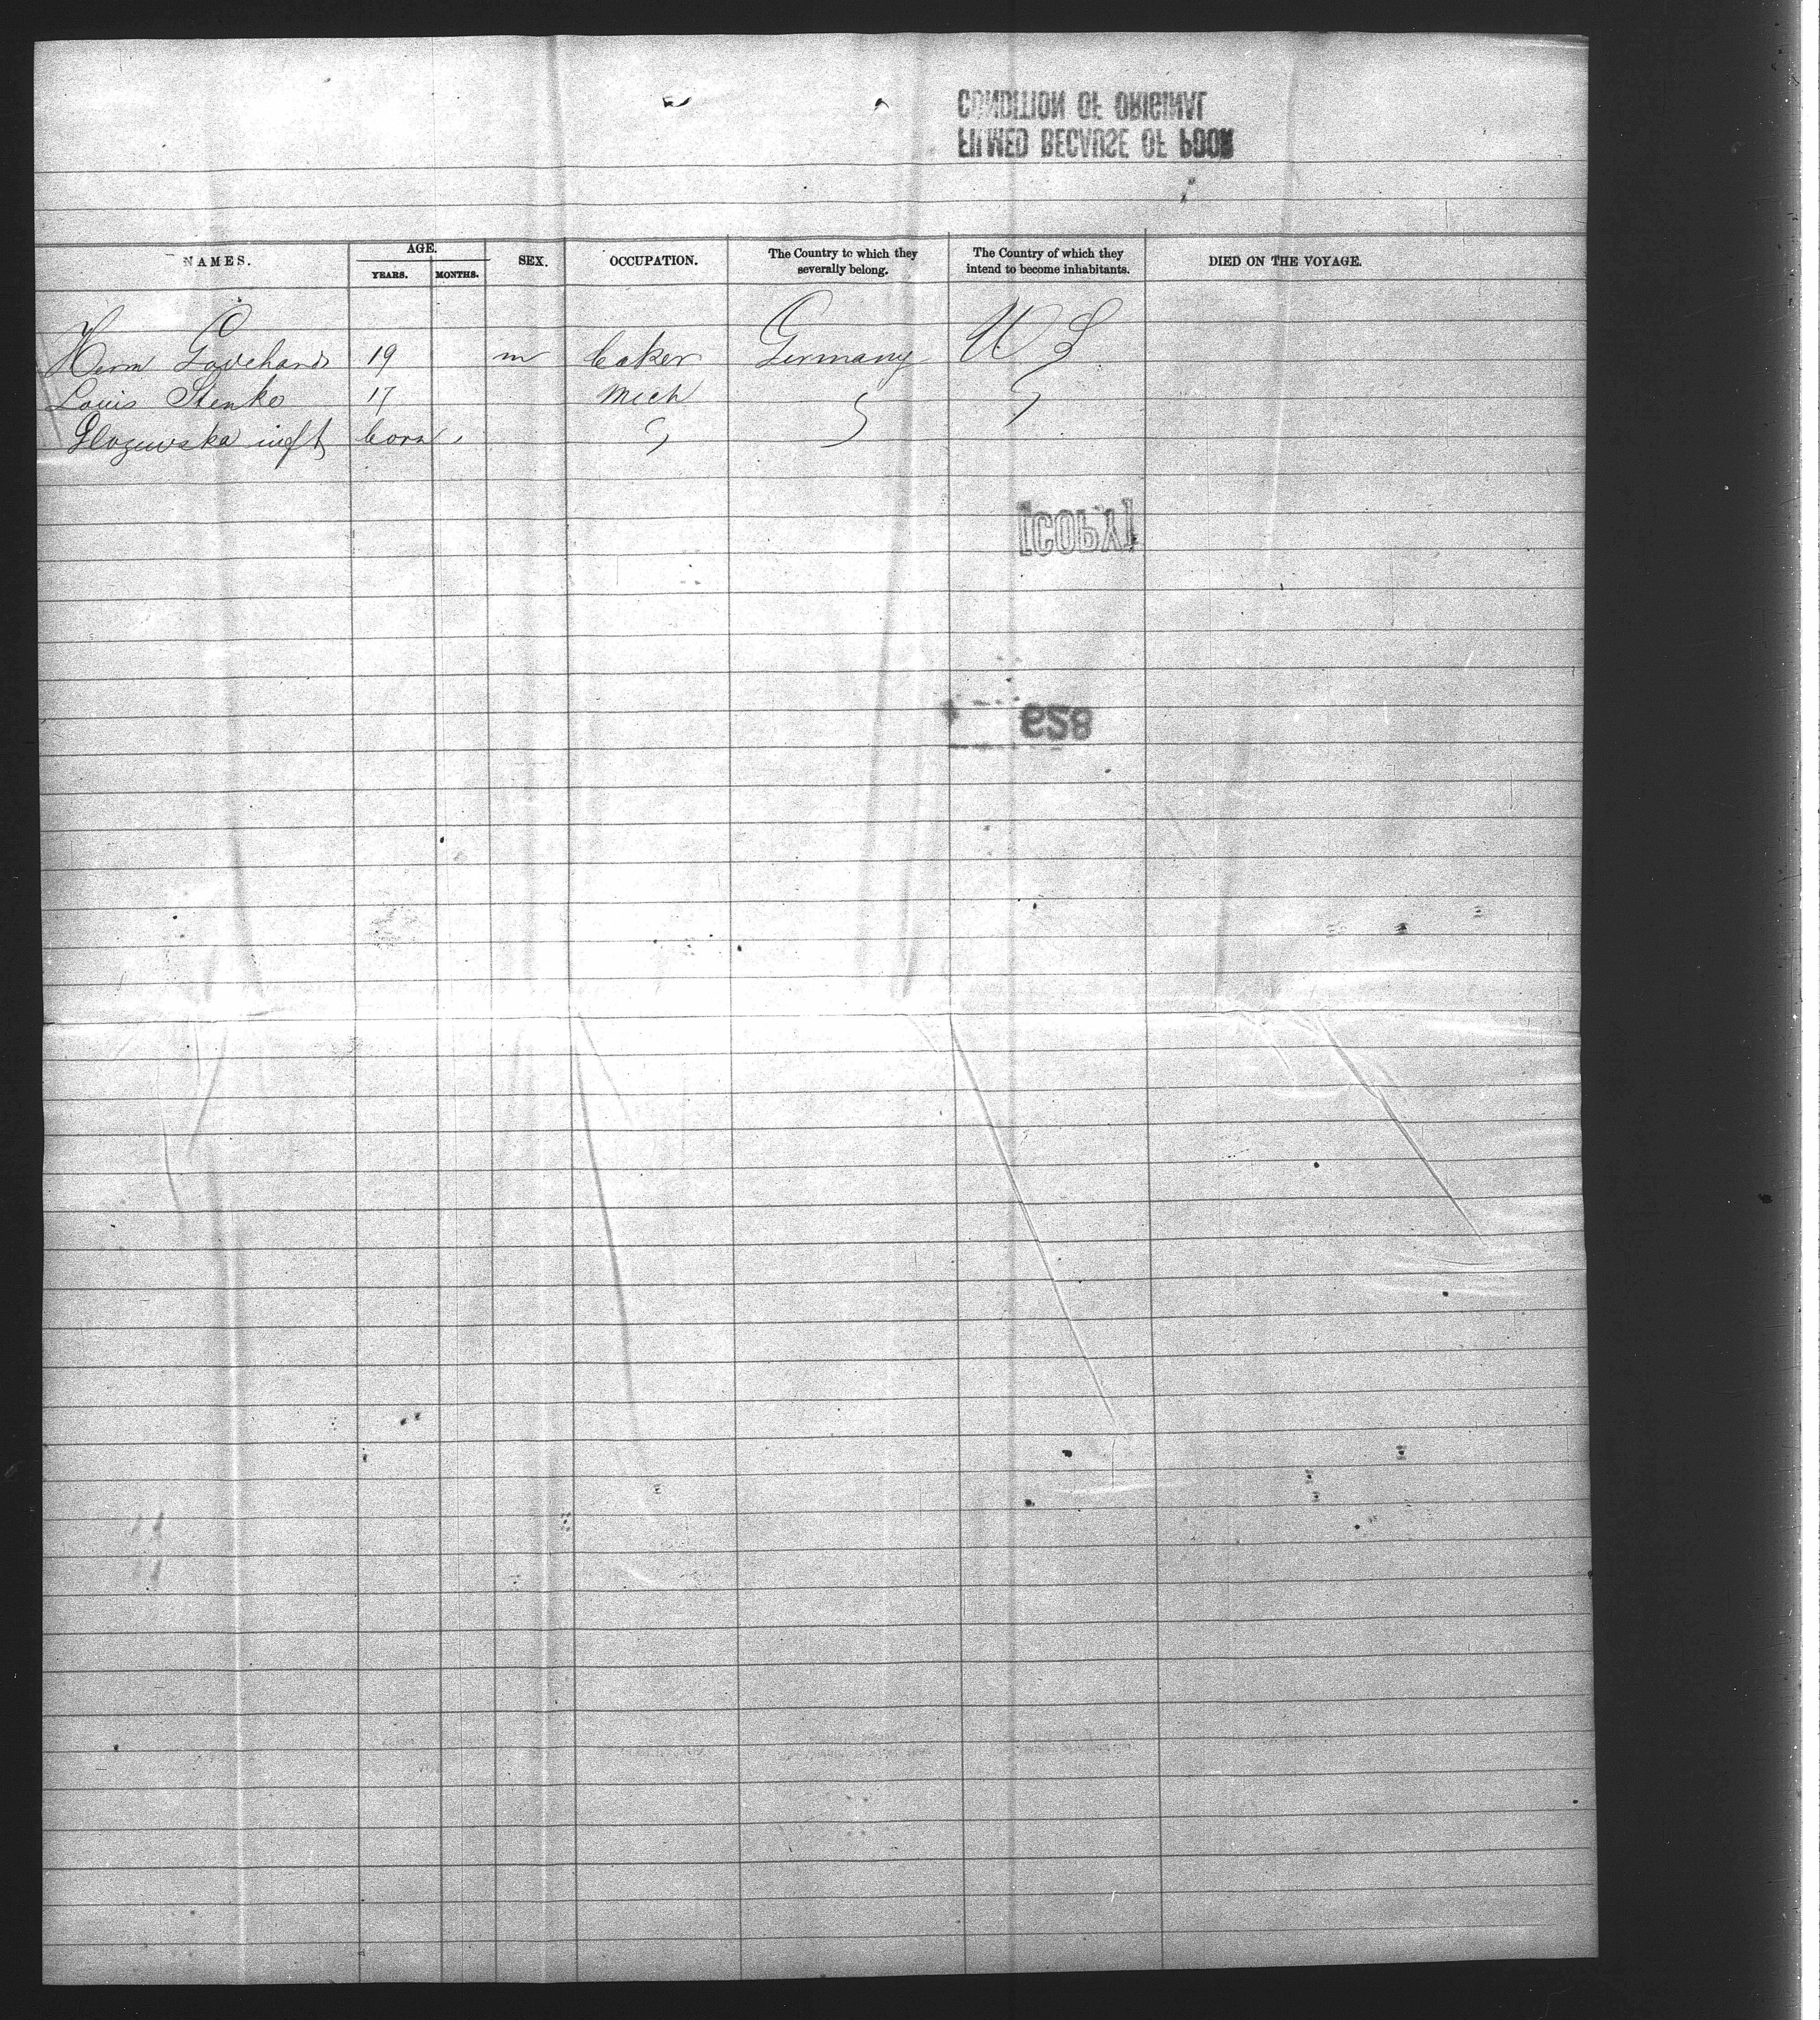 FILMED BECAUSE OF POOR
CONDITION OF ORIGINAL
NAMES. AGE. YEARS. MONTHS. SEX. OCCUPATION. The Country to which they severally belong. The Country of which they intend to become inhabitants. DIED ON THE VOYAGE.
Herm 19 m baker Germany US
Louis Stenko 17 mech
inft born
[COPY]
928